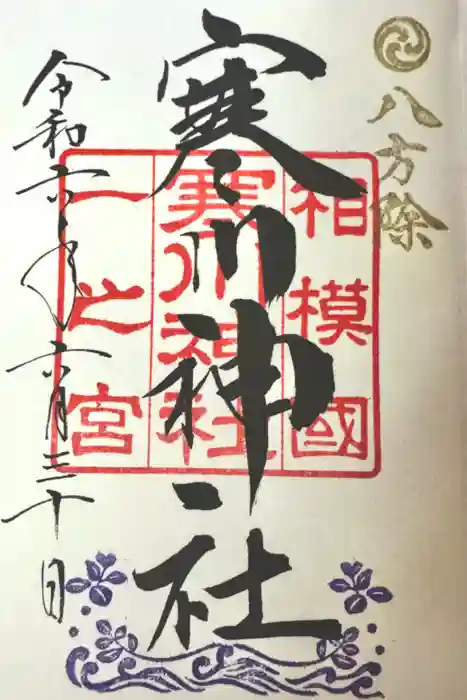 八方除
相模國
寒川神社
一之宮
寒川神社
令和六年六月三十日